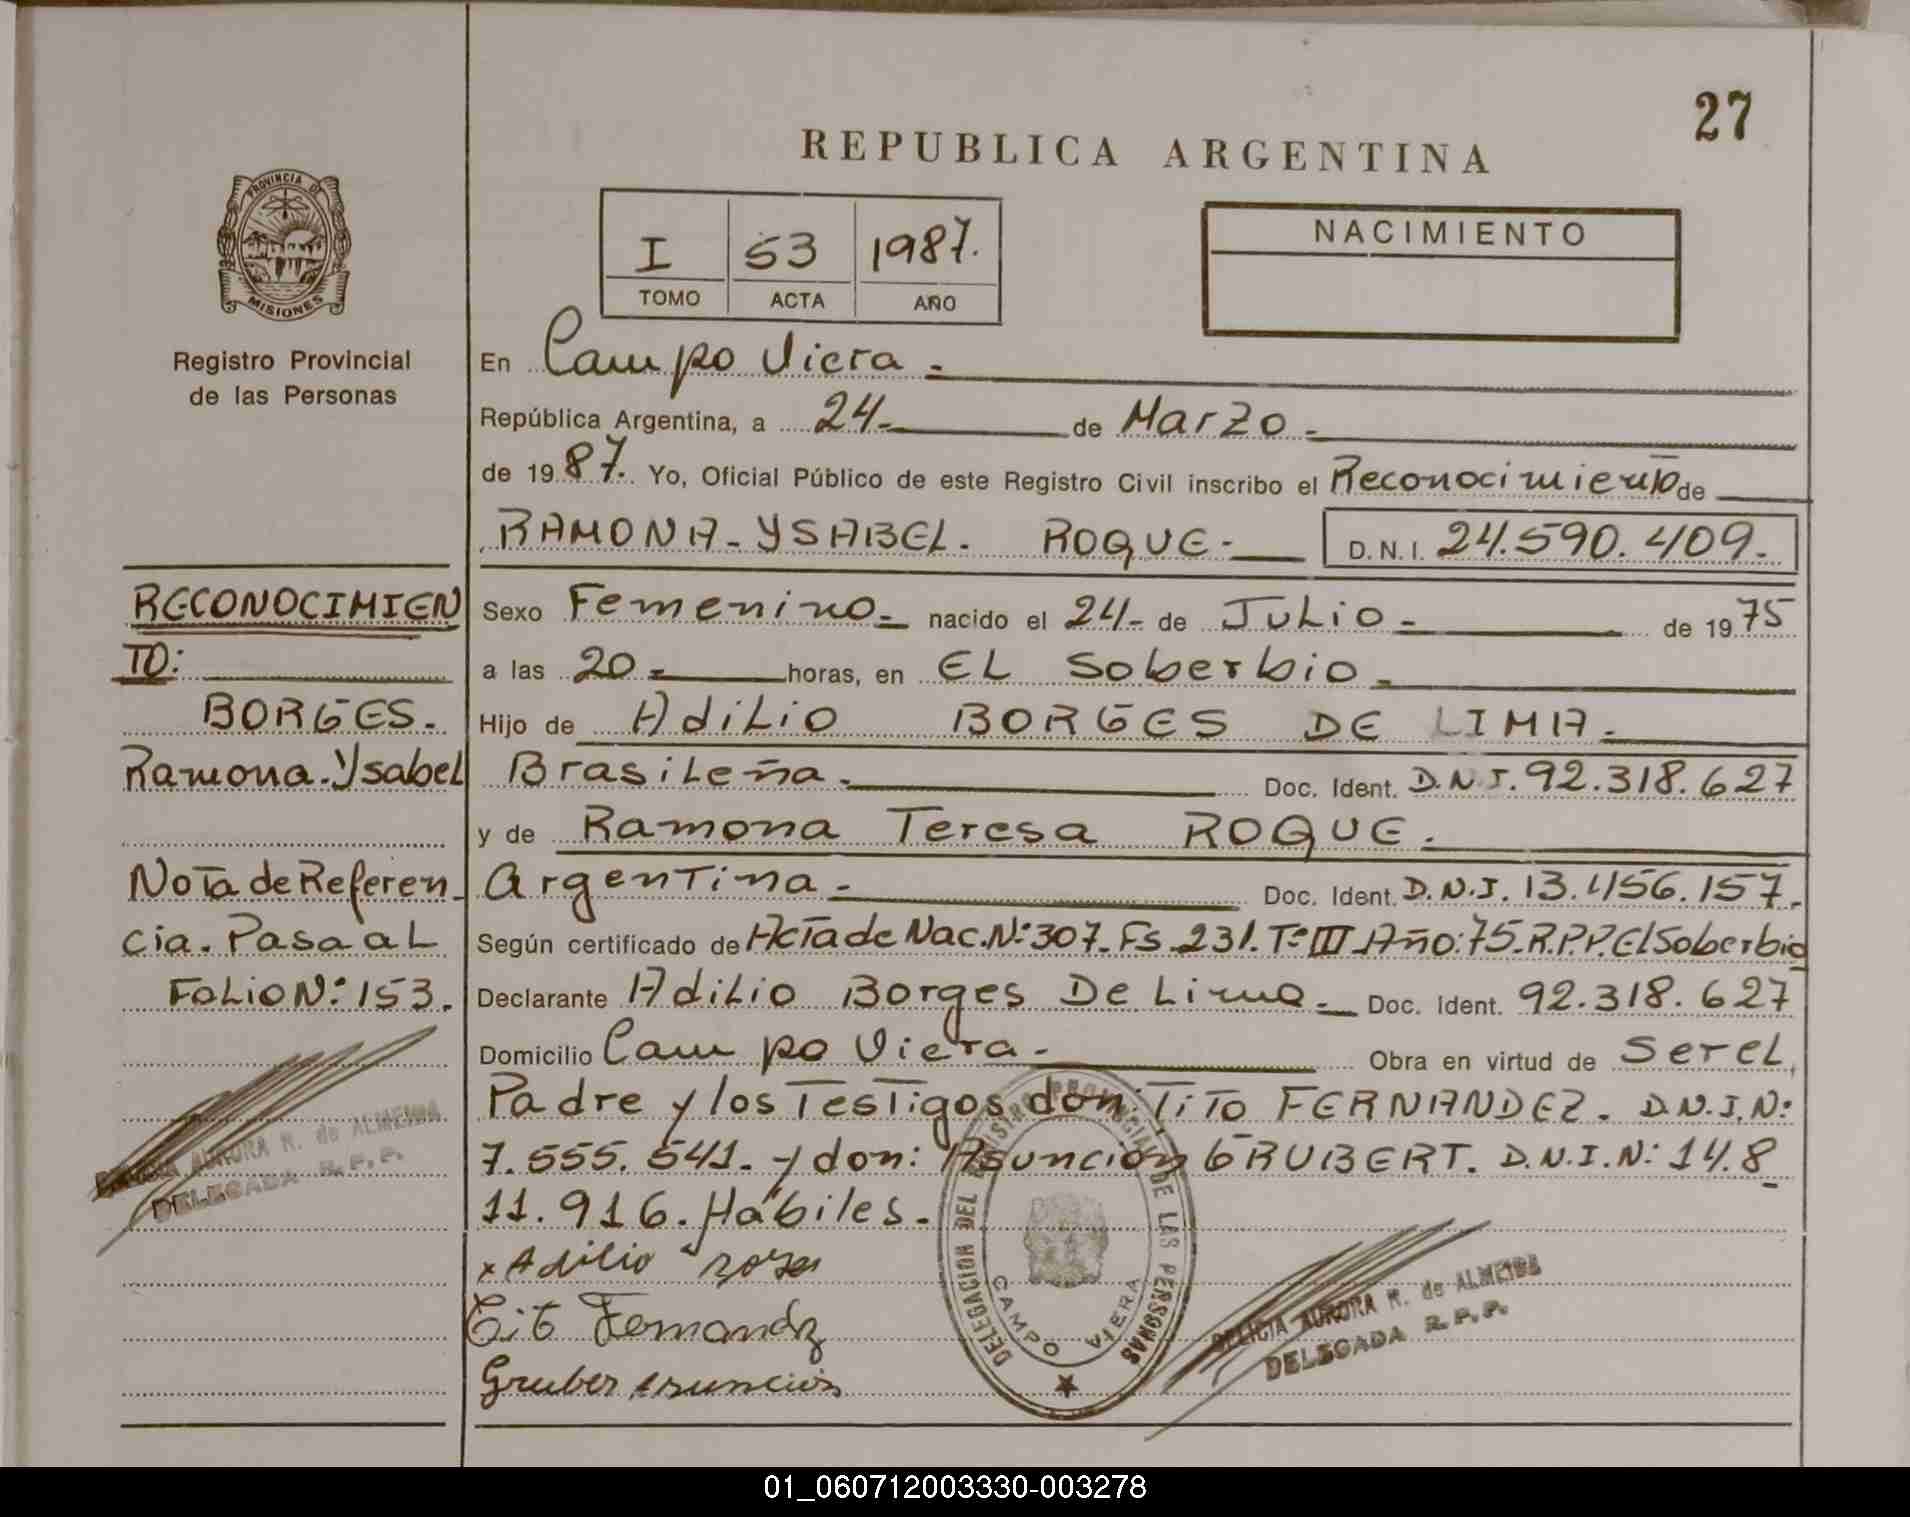 27
REPUBLICA ARGENTINA
PROVINCIA DE
MISIONES
Registro Provincial
de las Personas
I 53 1987.
TOMO ACTA AÑO
NACIMIENTO
En Campo Viera.-
República Argentina, a 24- de Marzo.-
de 1987. Yo, Oficial Público de este Registro Civil inscribo el Reconocimiento de
RAMONA-YSABEL. ROQUE- D.N.I. 24.590.409.-
RECONOCIMIEN
TO:
BORGES.
Ramona.Ysabel
Nota de Referen-
cia. Pasa al
Folio N: 153.
DELICIA AURORA R. de ALMEIDA
DELEGADA R.P.P.
Sexo Femenino.- nacido el 24- de Julio.- de 1975
a las 20.- horas, en EL Soberbio.-
Hijo de Adilio BORGES DE LIMA.-
Brasileña.- Doc. Ident. D.N.I. 92.318.627
y de Ramona Teresa ROQUE.-
Argentina.- Doc. Ident. D.N.I. 13.456.157.
Según certificado de Acta de Nac.N:307.Fs.231.Tº III Año:75-R.P.P.El Soberbio
Declarante Adilio Borges De Lima.- Doc. Ident. 92.318.627
Domicilio Campo Viera.- Obra en virtud de Ser el
Padre y los Testigos don: TiTo FERNANDEZ. D.N.I.N:
7.555.541.- y don: Asunción GRUBERT. D.N.I.N: 14.8
11.916. Hábiles.-
x Adilio
Tito Fernandz
Gruber asuncion
DELEGACION DEL REGISTRO PROVINCIAL DE LAS PERSONAS
CAMPO VIERA
DELICIA AURORA R. de ALMEIDA
DELEGADA R.P.P.
01_060712003330-003278